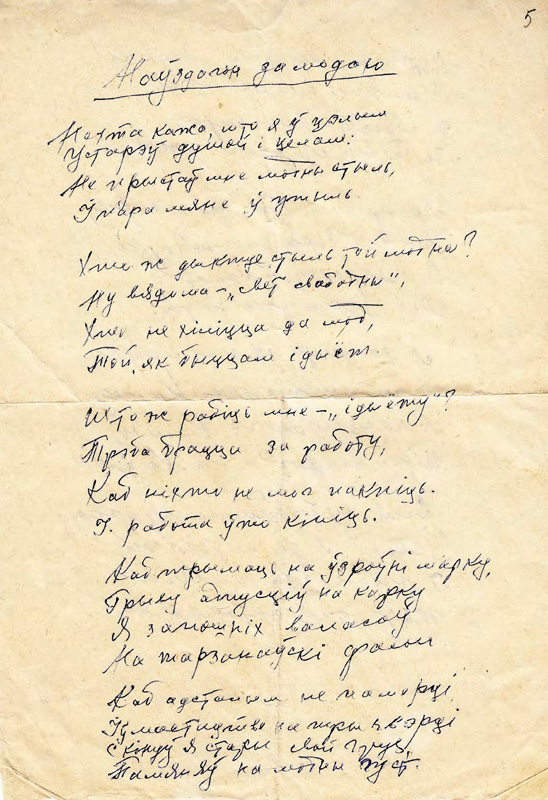 5
Наўздагон за модаю
Нехта кажа, што я ў цэлым
Устарэў душой і целам:
Не прыстаў мне модны стыль,
Ў пара мяне ў утыль.
Хто ж дыктуе стыль той модны?
Ну вядома – „свет свабодны“,
Хто не хіліцца да мод,
Той, як быццам ідыёт.
Што ж рабіць мне – „ідыёту“?
Трэба брацца за работу,
Каб ніхто не мог пакпіць.
І работа ўжо кіпіць.
Каб трымаць на ўзроўні марку,
Грыву адпусціў на карку
Я заношніх валасоў
На тарзанаўскі фасон
Каб адсталым не памерці
І ў мастацтве на тры чвэрці
Скінуў я стары свой густ,
Памяняў на модны густ.